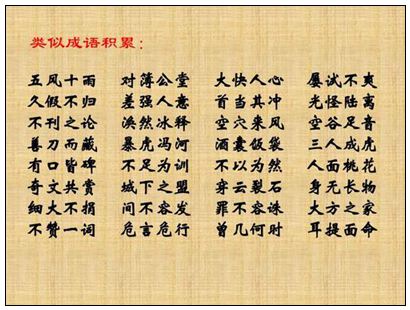 类似成语积累：
五风十雨 对薄公堂 大快人心 屡试不爽
久假不归 差强人意 首当其冲 光怪陆离
不刊之论 涣然冰释 空穴来风 空谷足音
善刀而藏 暴虎冯河 酒囊饭袋 三人成虎
有口皆碑 不足为训 不以为然 人面桃花
奇文共赏 城下之盟 穿云裂石 身无长物
细大不捐 间不容发 罪不容诛 大方之家
不赞一词 危言危行 曾几何时 耳提面命